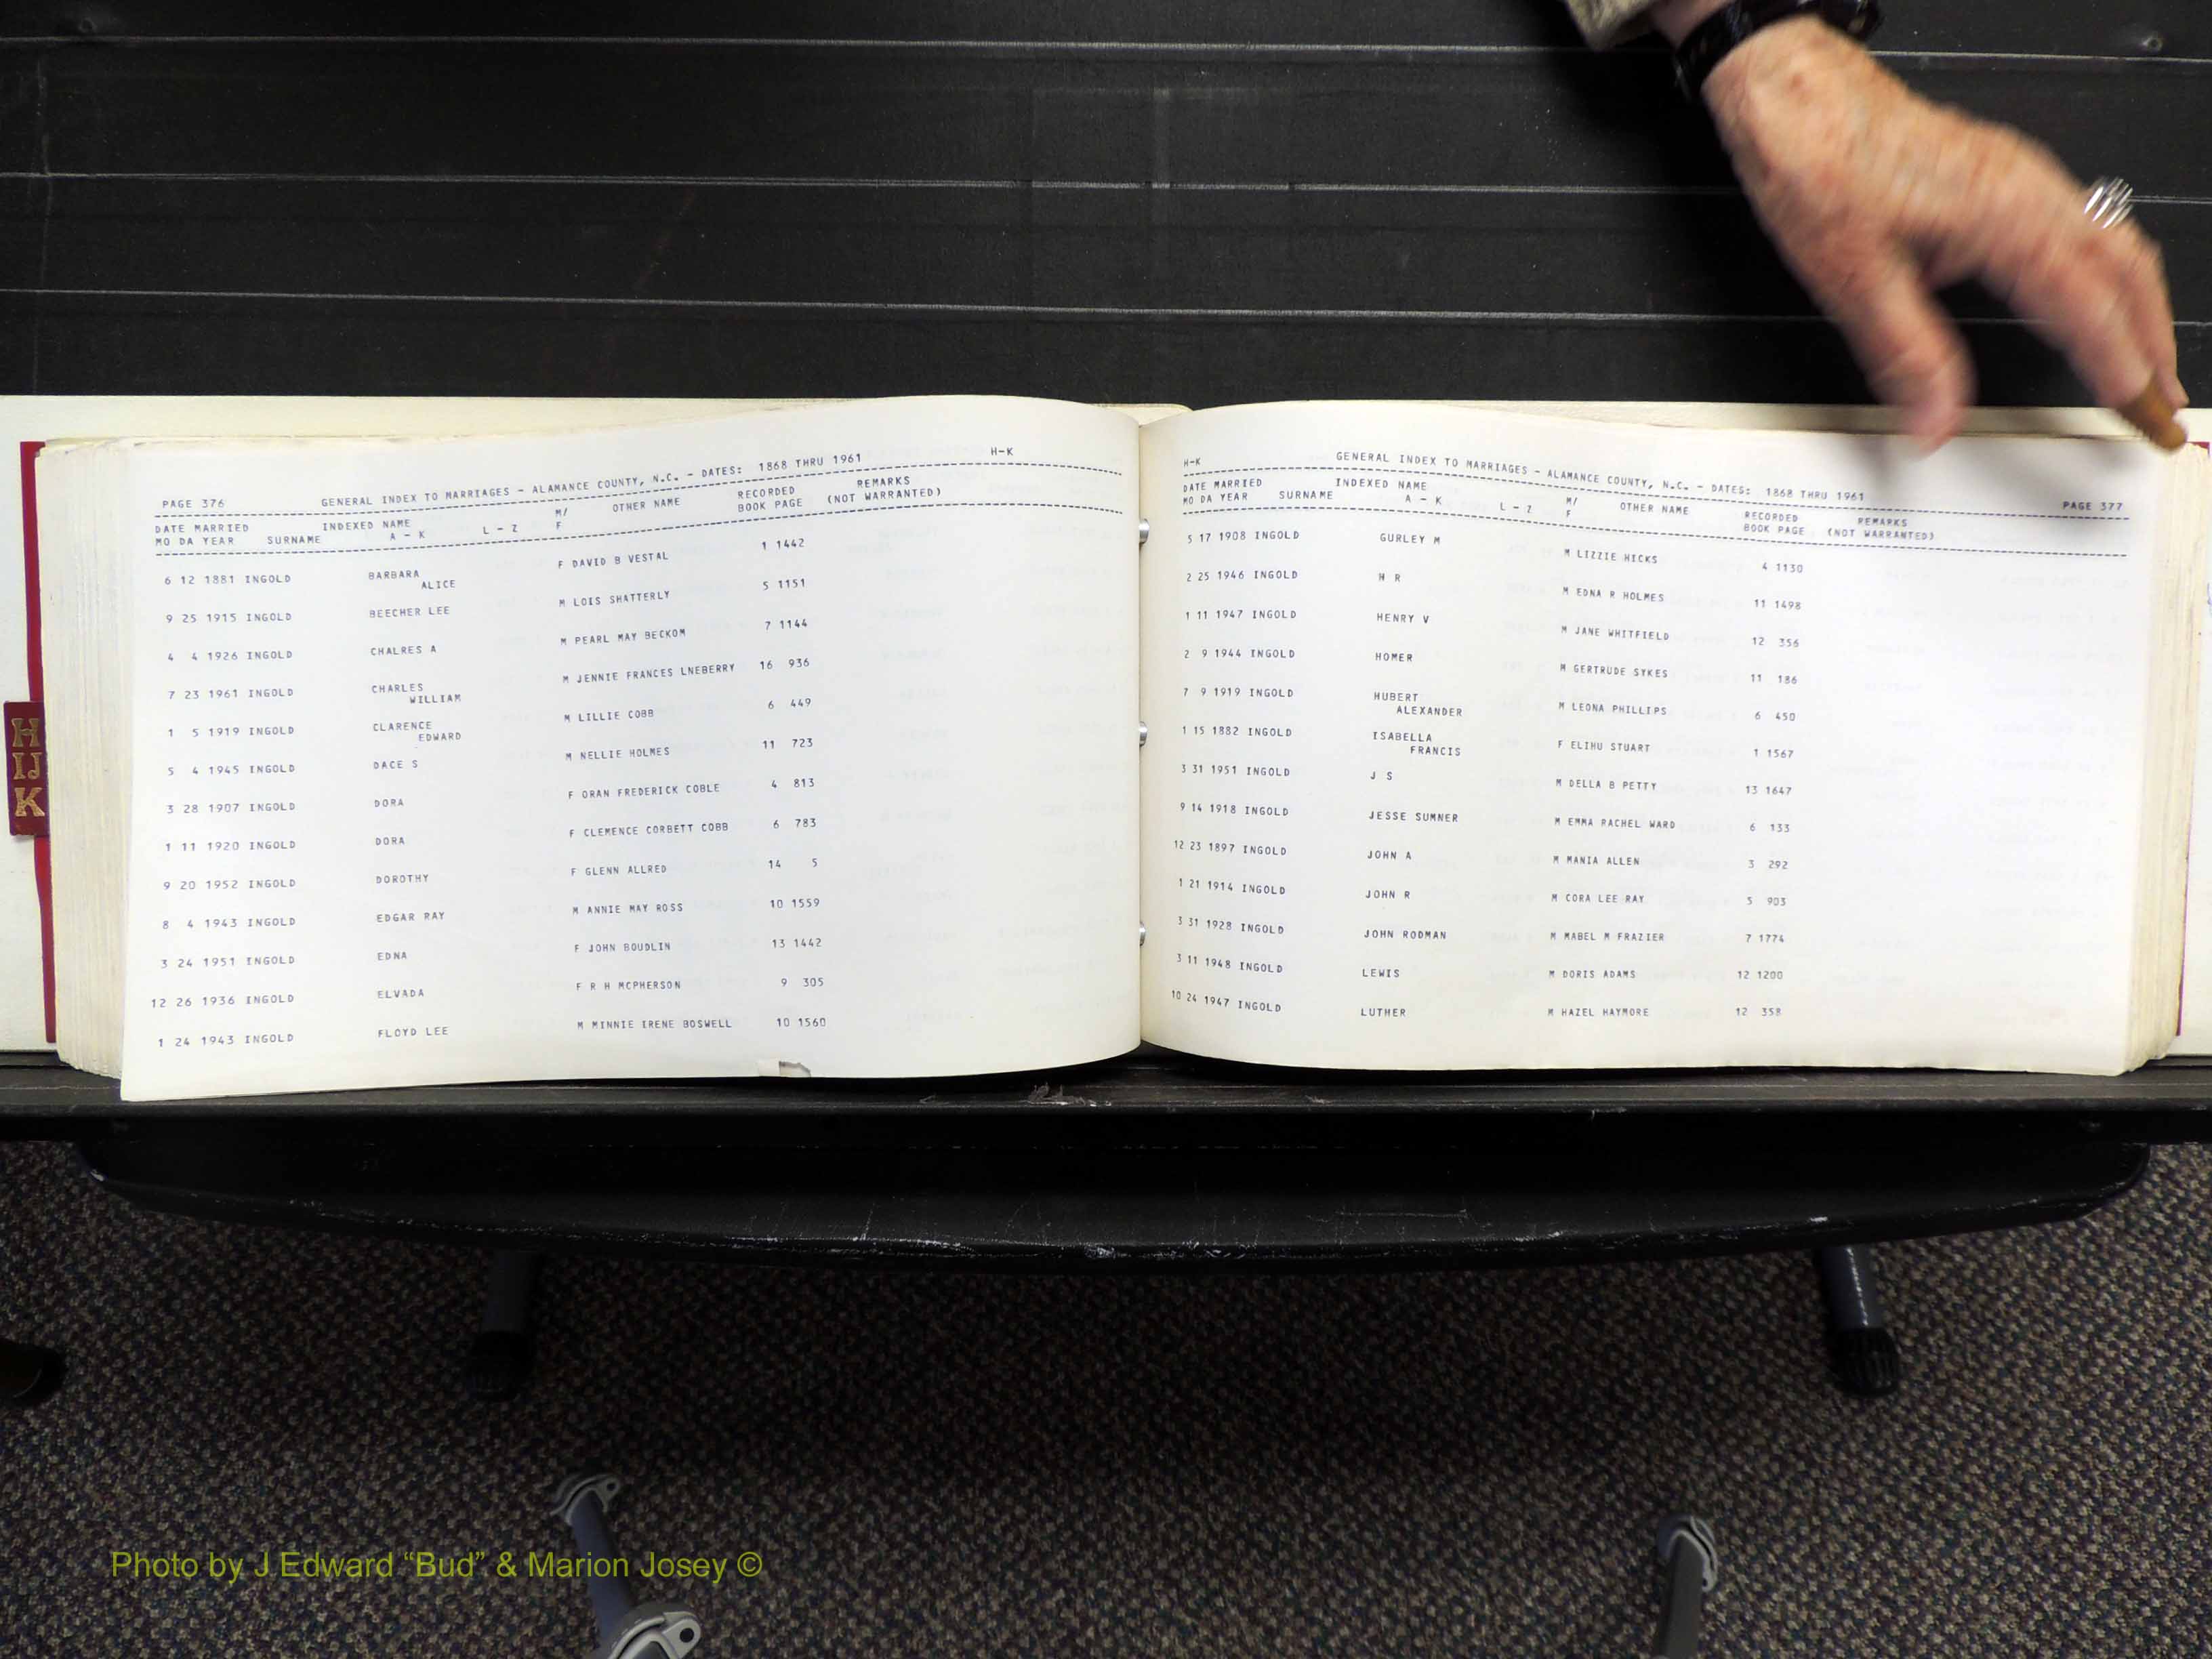 H-K
PAGE 376 GENERAL INDEX TO MARRIAGES - ALAMANCE COUNTY, N.C. - DATES: 1868 THRU 1961
DATE MARRIED INDEXED NAME M/ OTHER NAME RECORDED REMARKS
MO DA YEAR SURNAME A - K L - Z F BOOK PAGE (NOT WARRANTED)
6 12 1881 INGOLD BARBARA F DAVID B VESTAL 1 1442
ALICE
9 25 1915 INGOLD BEECHER LEE M LOIS SHATTERLY 5 1151
4 4 1926 INGOLD CHALRES A M PEARL MAY BECKOM 7 1144
7 23 1961 INGOLD CHARLES M JENNIE FRANCES LNEBERRY 16 936
WILLIAM
1 5 1919 INGOLD CLARENCE M LILLIE COBB 6 449
EDWARD
5 4 1945 INGOLD DACE S M NELLIE HOLMES 11 723
3 28 1907 INGOLD DORA F ORAN FREDERICK COBLE 4 813
1 11 1920 INGOLD DORA F CLEMENCE CORBETT COBB 6 783
9 20 1952 INGOLD DOROTHY F GLENN ALLRED 14 5
8 4 1943 INGOLD EDGAR RAY M ANNIE MAY ROSS 10 1559
3 24 1951 INGOLD EDNA F JOHN BOUDLIN 13 1442
12 26 1936 INGOLD ELVADA F R H MCPHERSON 9 305
1 24 1943 INGOLD FLOYD LEE M MINNIE IRENE BOSWELL 10 1560
H
IJ
K
H-K GENERAL INDEX TO MARRIAGES - ALAMANCE COUNTY, N.C. - DATES: 1868 THRU 1961 PAGE 377
DATE MARRIED INDEXED NAME M/ OTHER NAME RECORDED REMARKS
MO DA YEAR SURNAME A - K L - Z F BOOK PAGE (NOT WARRANTED)
5 17 1908 INGOLD GURLEY M M LIZZIE HICKS 4 1130
2 25 1946 INGOLD H R M EDNA R HOLMES 11 1498
1 11 1947 INGOLD HENRY V M JANE WHITFIELD 12 356
2 9 1944 INGOLD HOMER M GERTRUDE SYKES 11 186
7 9 1919 INGOLD HUBERT M LEONA PHILLIPS 6 450
ALEXANDER
1 15 1882 INGOLD ISABELLA F ELIHU STUART 1 1567
FRANCIS
3 31 1951 INGOLD J S M DELLA B PETTY 13 1647
9 14 1918 INGOLD JESSE SUMNER M EMMA RACHEL WARD 6 133
12 23 1897 INGOLD JOHN A M MANIA ALLEN 3 292
1 21 1914 INGOLD JOHN R M CORA LEE RAY 5 903
3 31 1928 INGOLD JOHN RODMAN M MABEL M FRAZIER 7 1774
3 11 1948 INGOLD LEWIS M DORIS ADAMS 12 1200
10 24 1947 INGOLD LUTHER M HAZEL HAYMORE 12 358
Photo by J Edward “Bud” & Marion Josey ©